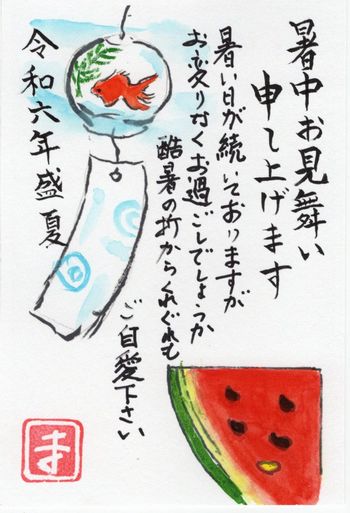 暑中お見舞い
申し上げます
暑い日が続いておりますが
お変りなくお過ごしでしょうか
酷暑の折からくれぐれも
ご自愛下さい
令和六年盛夏
ま